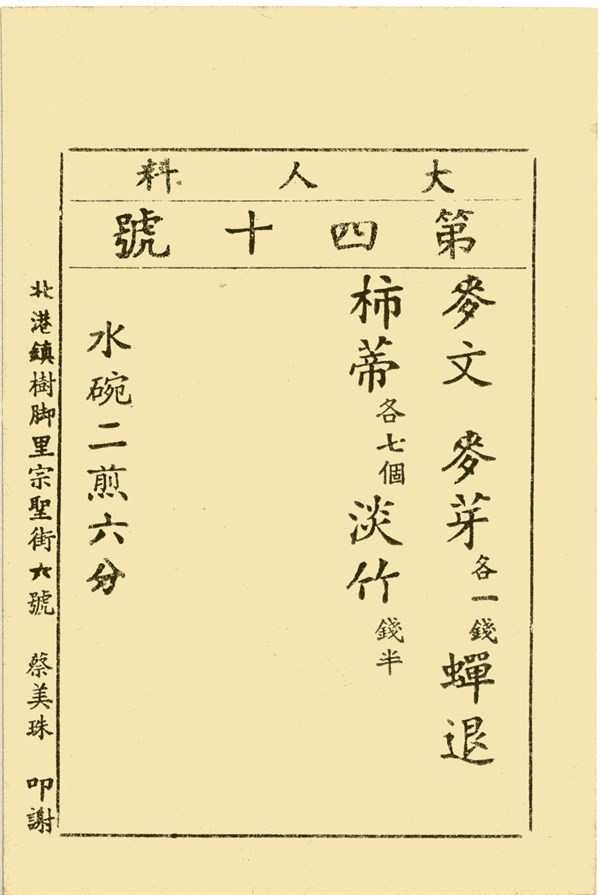 大人料
第四十號
麥文 麥芽各一錢 蟬退
柿蒂各七個 淡竹錢半
水碗二煎六分
北港鎮樹脚里宗聖街六號 蔡美珠 叩謝